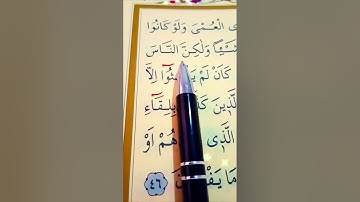 الْعُمْىَ وَلَوْ كَانُوا
شَيْـٔاً وَلٰكِنَّ النَّاسَ
كَاَنْ لَمْ اِلَّا
الَّذ۪ينَ بِلِقَٓاءِ
الَّذ۪ى اَوْ
مَا ٤٦